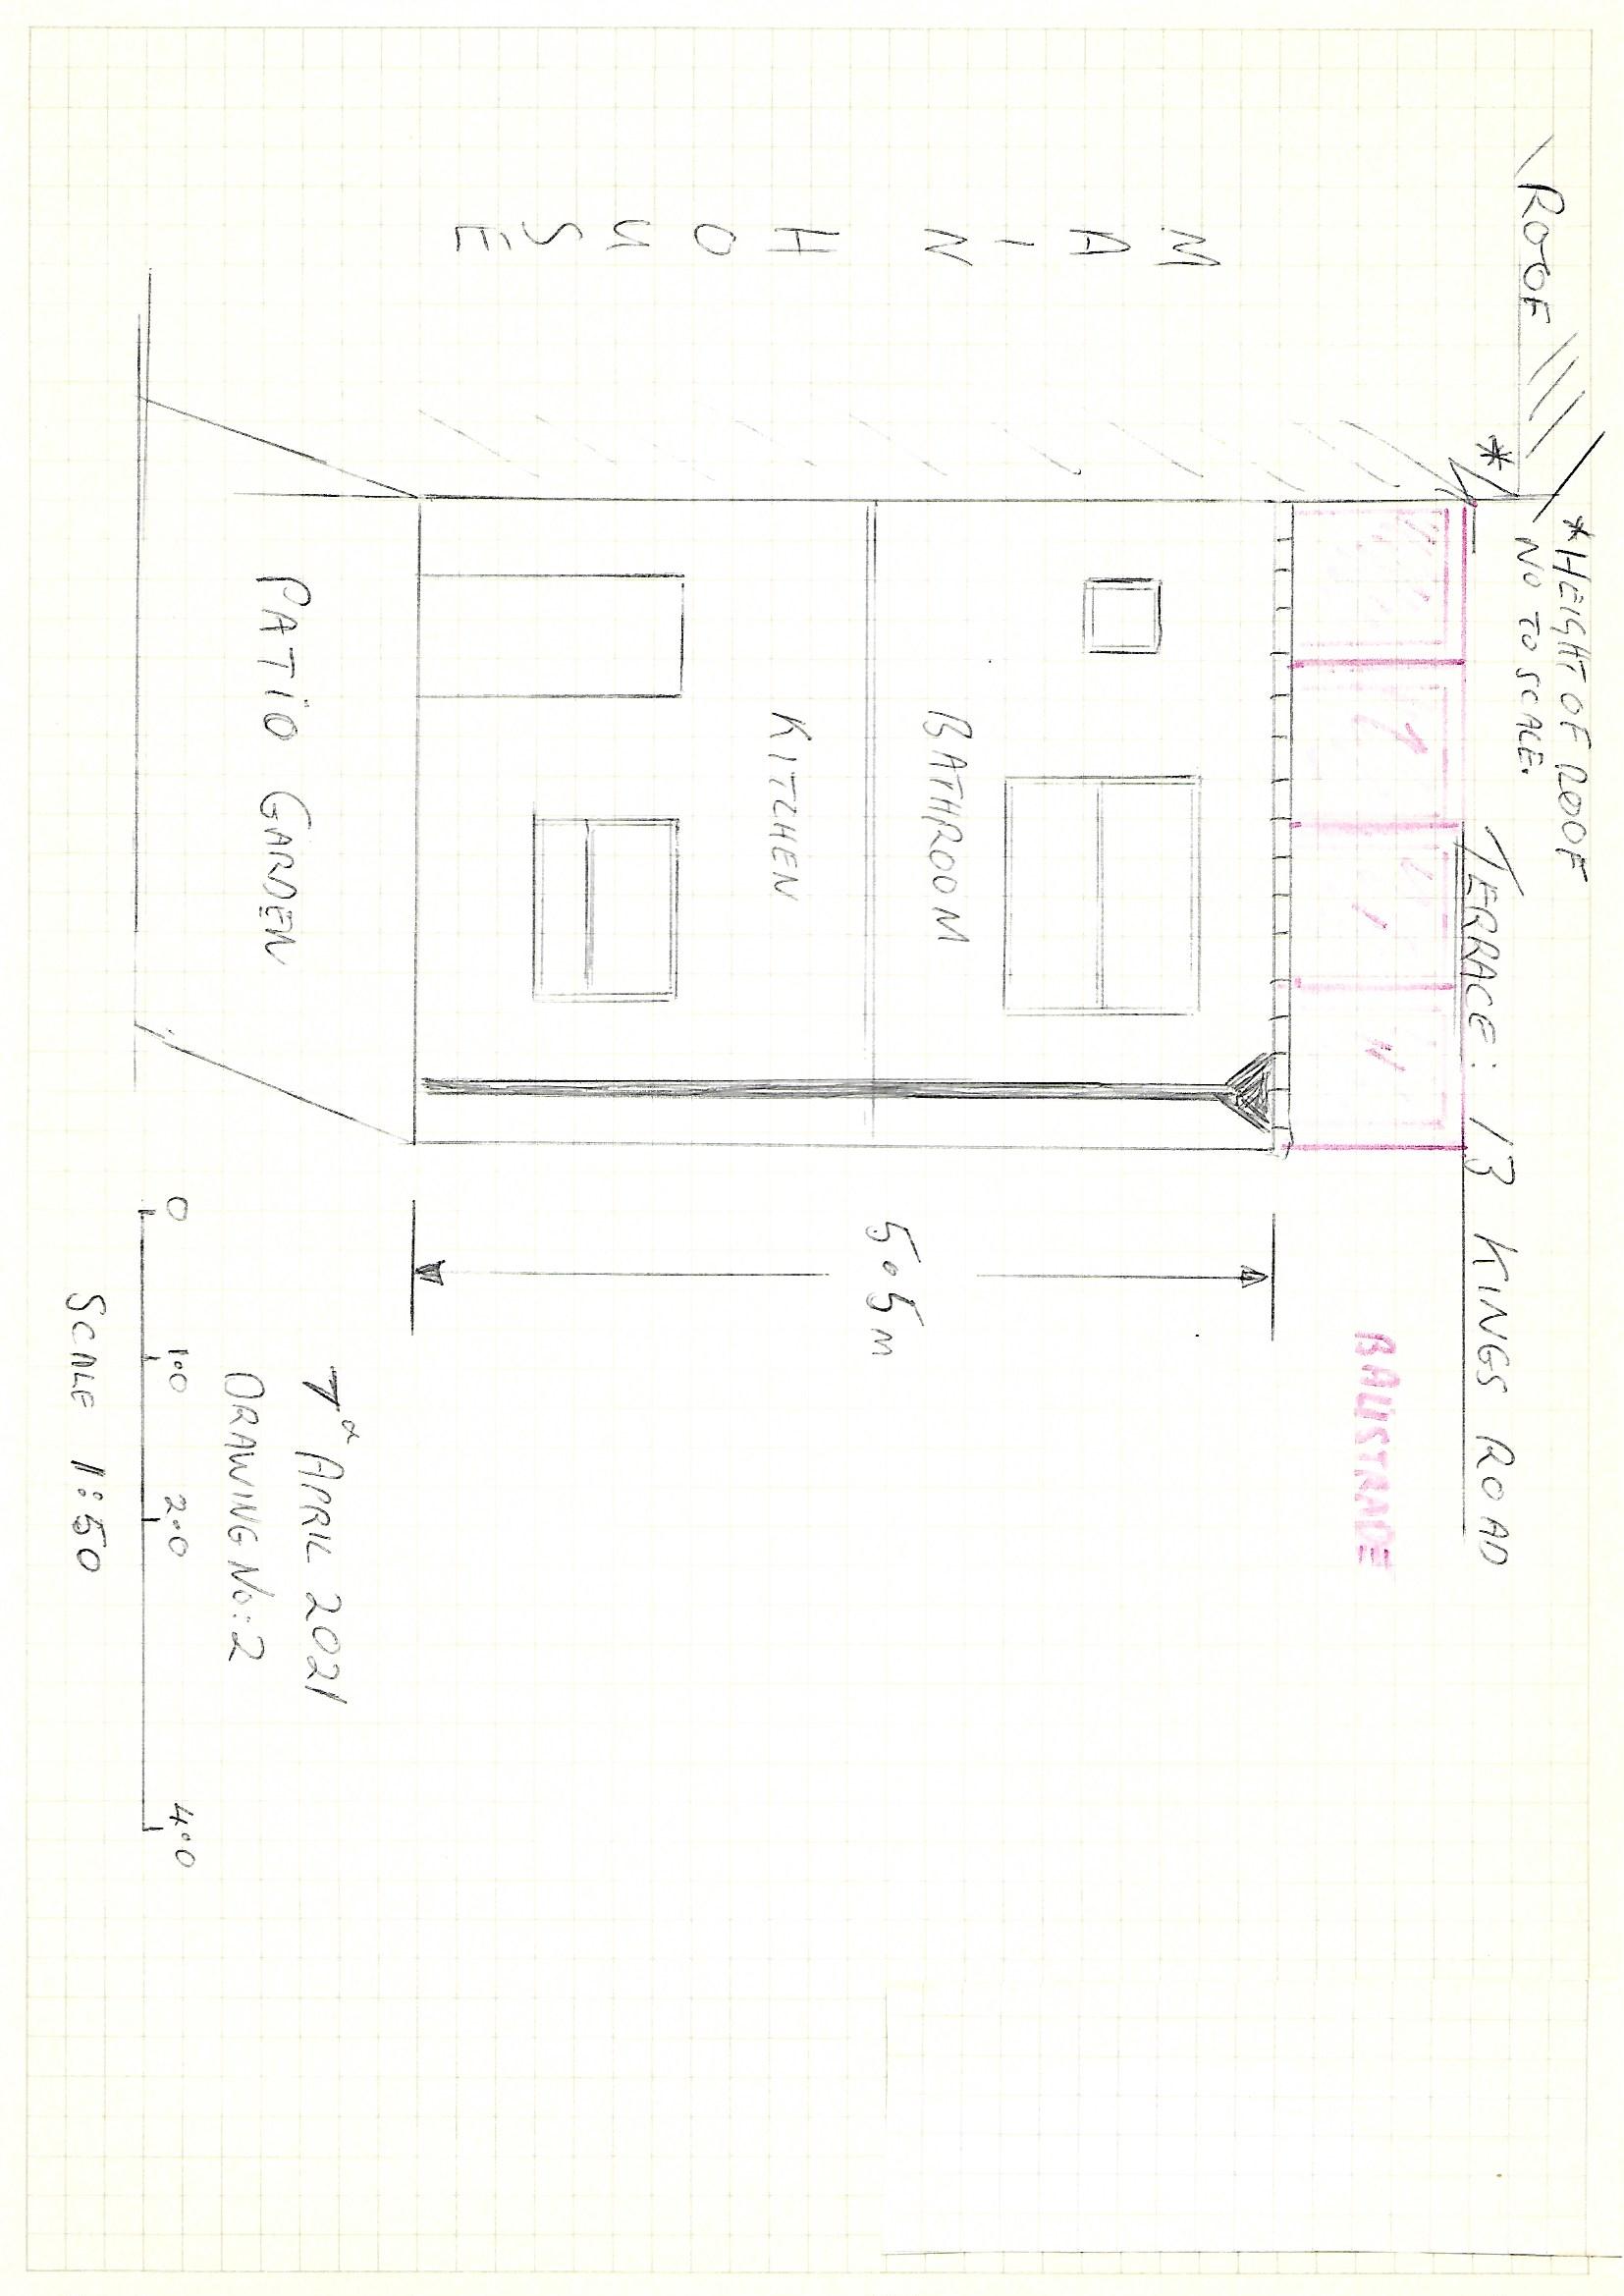 ROOF
*
*HEIGHT OF ROOF
NO TO SCALE.
TERRACE: 13 KINGS ROAD
BALUSTRADE
MAIN HOUSE
BATHROOM
KITCHEN
5.5m
PATIO GARDEN
APRIL 2021
DRAWING No: 2
0 1.0 2.0 4.0
SCALE 1:50